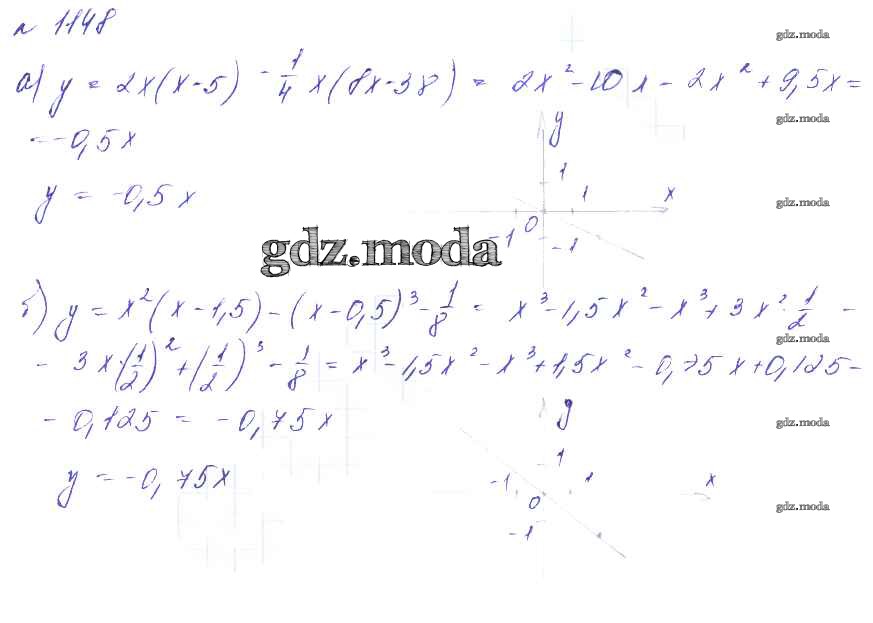 № 1148
gdz.moda
а) y = 2x(x-5) - 1/4 x(8x-38) = 2x² - 10x - 2x² + 9,5x =
gdz.moda
= -0,5x
y
1
1
x
y = -0,5x
gdz.moda
0
-1
-1
gdz.moda
б) y = x²(x-1,5) - (x-0,5)³ - 1/8 = x³ - 1,5x² - x³ + 3x² · 1/2 -
gdz.moda
- 3x·(1/2)² + (1/2)³ - 1/8 = x³ - 1,5x² - x³ + 1,5x² - 0,75x + 0,125 -
- 0,125 = -0,75x
y
gdz.moda
y = -0,75x
1
-1
1
x
0
gdz.moda
-1